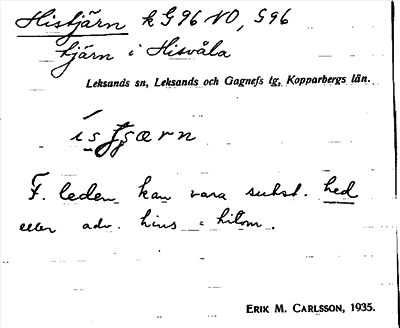 Histjärn k G96 NO, S96
tjärn i Hisvåla
Leksands sn, Leksands och Gagnefs tg, Kopparbergs län.
F. leden kan vara subst. hed
eller adv. hins = hitom.
ERIK M. CARLSSON, 1935.